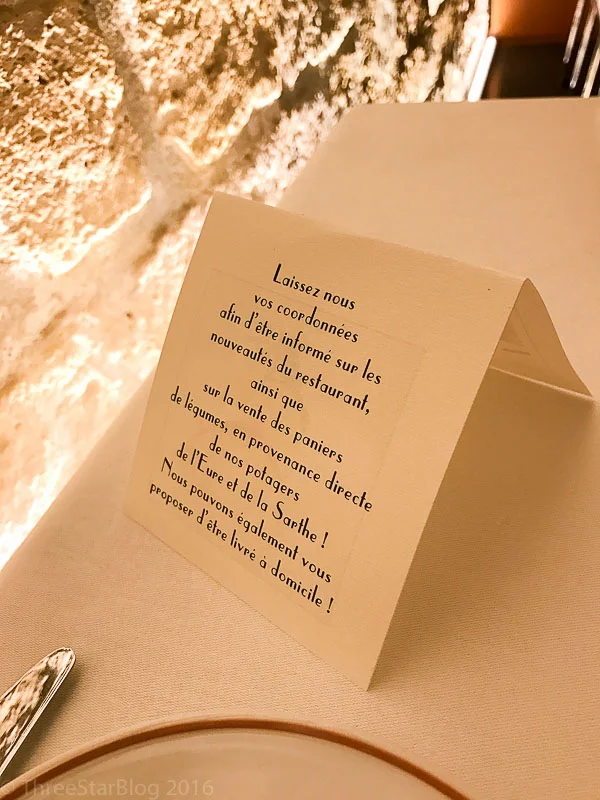 Laissez nous
vos coordonnées
afin d'être informé sur les
nouveautés du restaurant,
ainsi que
sur la vente des paniers
de légumes, en provenance directe
de nos potagers
de l'Eure et de la Sarthe !
Nous pouvons également vous
proposer d'être livré à domicile !
© ThreeStarBlog 2016